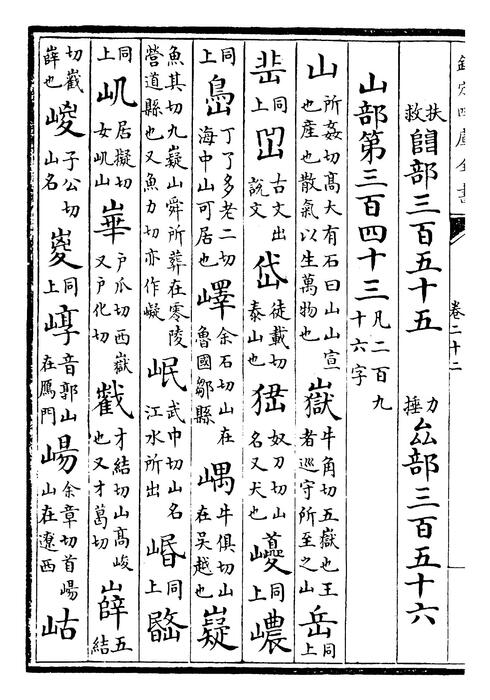 欽定四庫全書
卷二十二
扶救𨺅部三百五十五　力捶厽部三百五十六
山部第三百四十三凡二百九十六字
山所姦切高大有石曰山山宣也產也散氣以生萬物也嶽牛角切五嶽也王者巡守所至之山岳同上
𡵆同上𡶳古文出說文岱徒載切泰山也峱奴刀切山名又犬也巎同上𡿝
同上㠀丁了多老二切海中山可居也嶧余石切山在魯國鄒縣嵎牛俱切山在吳越也嶷
魚其切九嶷山舜所葬在零陵營道縣也又魚力切亦作㠜岷武巾切山名江水所出㟭同上𡻕
同上𡵓居擬切女𡵓山崋戶瓜切西嶽又戶化切㠔才結切山高峻也又才葛切嶭五結
切㠔嶭也峻子公切山名嵏同上崞音郭山在鴈門崵余章切首崵山在遼西岵